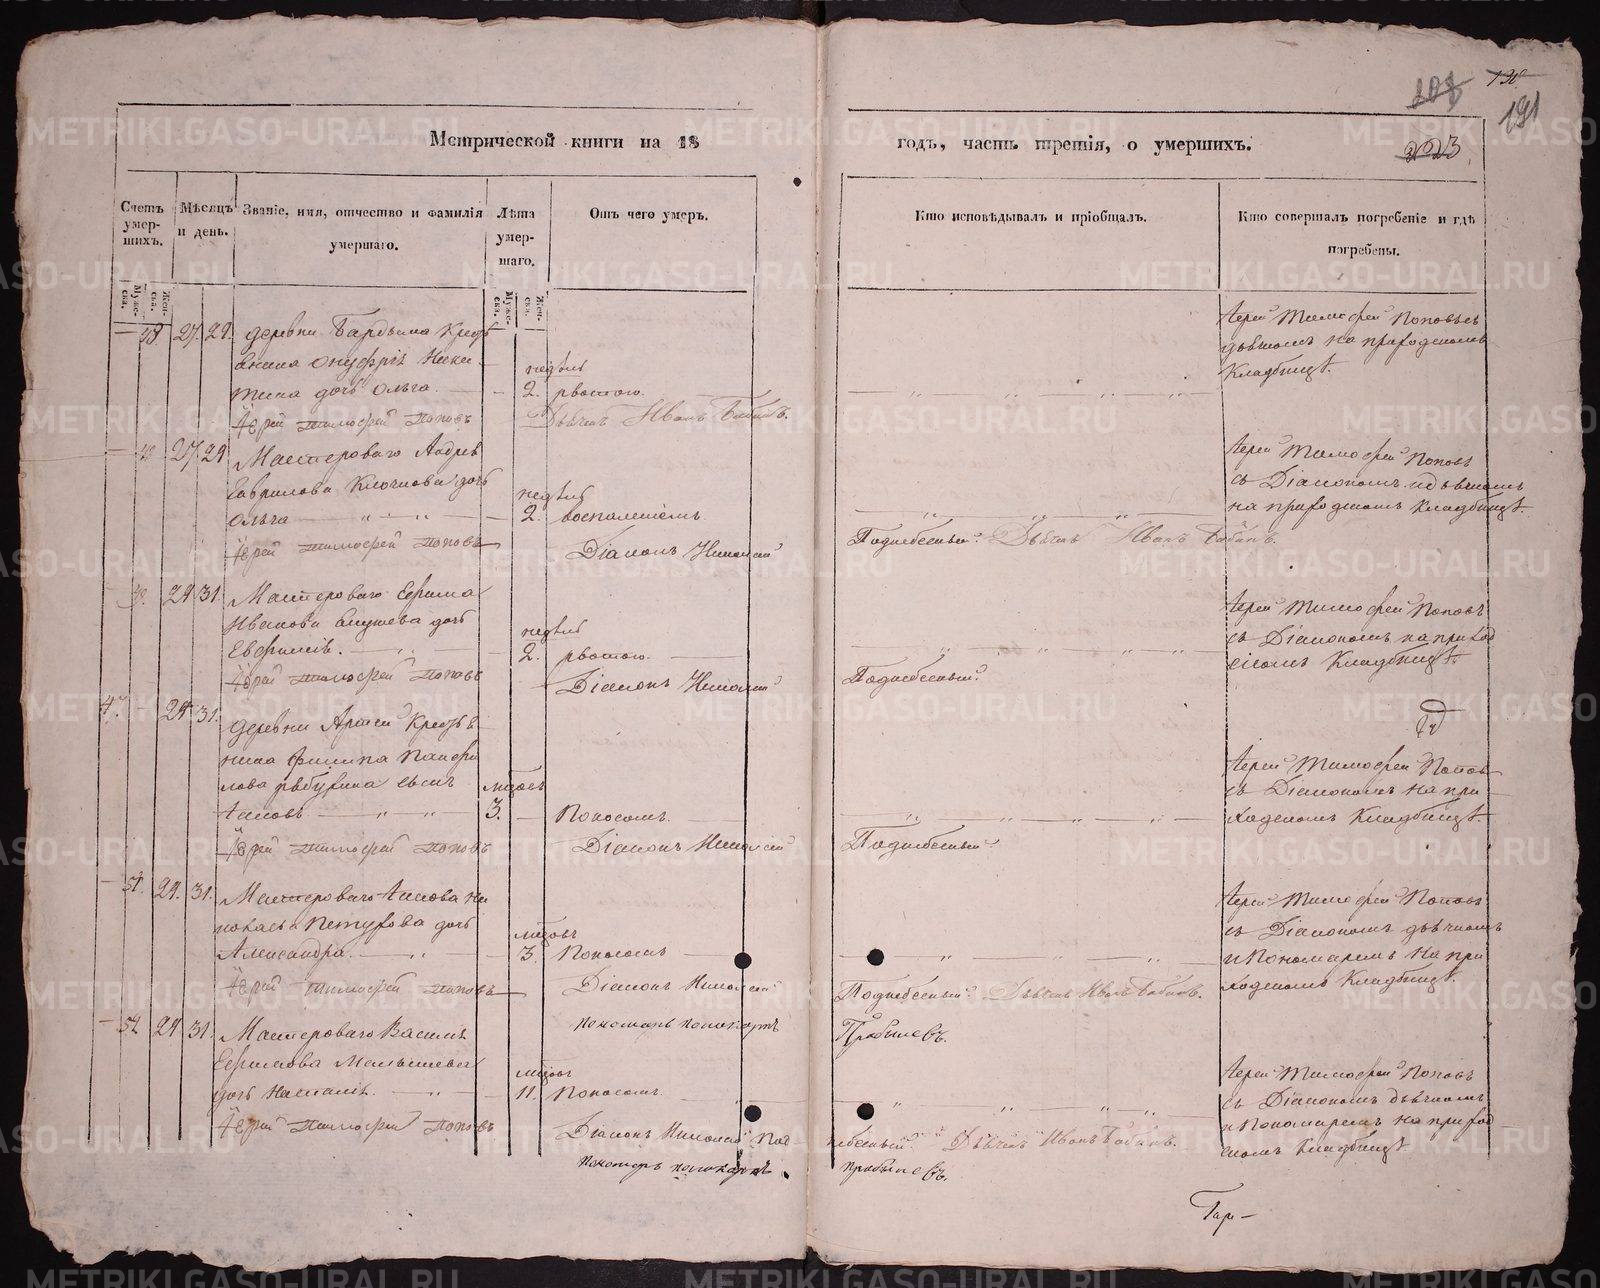 130
191
223
Метрической книги на 18 годъ, часть третія, о умершихъ.
Счетъ умерших.
Мѣсяцъ и день.
Званіе, имя, отчество и фамилія умершаго.
Лѣта умершаго.
Отъ чего умеръ.
Кто исповѣдывалъ и пріобщалъ.
Кто совершалъ погребеніе и гдѣ погребены.
Мужеска.
Женска.
Мужеска.
Женска.
48. 27. 29. деревни Бардыма Кресть
янина Онуфрія Ники
тина дочь Ольга. 2. недѣль рвотою.
Іерей Тимофей Поповъ
Дьячекъ Иванъ Бабинъ.
Іерей Тимофей Поповъ съ
дьячкомъ на приходскомъ
Кладбищѣ.
27 29 Мастероваго Андрея
Гаврилова Клочкова дочь
Ольга 2. недѣль воспаленіемъ
Іерей Тимофей Поповъ
Діаконъ Николай Поднебесный. Дьячекъ Иванъ Бабинъ.
Іерей Тимофей Поповъ
съ Діакономъ и дьячкомъ
на приходскомъ Кладбищѣ.
29 31. Мастероваго Ефима
Иванова дочь
Евфимія. 2. недѣль рвотою.
Іерей Тимофей Поповъ
Діаконъ Николай Поднебесный.
Іерей Тимофей Поповъ
съ Діакономъ на приход
скомъ Кладбищѣ.
47. 29 31. деревни Артей Кресть
нина Филипа Панфи
лова сынъ
Іаковъ 3. мѣсяц Поносомъ.
Іерей Тимофей Поповъ
Діаконъ Николай Поднебесный.
Іерей Тимофей Поповъ
съ Діакономъ на при
ходскомъ Кладбищѣ.
51. 29. 31. Мастероваго Іакова
Петухова дочь
Александра. 3. мѣсяцъ Поносомъ
Іерей Тимофей Поповъ
Діаконъ Николай Поднебесный. Дьячекъ Иванъ Бабинъ.
Пономарь Прибылевъ.
Іерей Тимофей Поповъ
съ Діакономъ дьячкомъ
и Пономаремъ на при
ходскомъ Кладбищѣ.
52 29 31. Мастероваго Василья
Ефимова Малышева
дочь Наталія. 11. мѣсяцъ Поносомъ.
Іерей Тимофей Поповъ
Діаконъ Николай Поднебесный. Дьячекъ Иванъ Бабинъ.
Пономарь Прибылевъ.
Іерей Тимофей Поповъ
съ Діакономъ дьячкомъ
и Пономаремъ на приход
скомъ Кладбищѣ.
METRIKI.GASO-URAL.RU